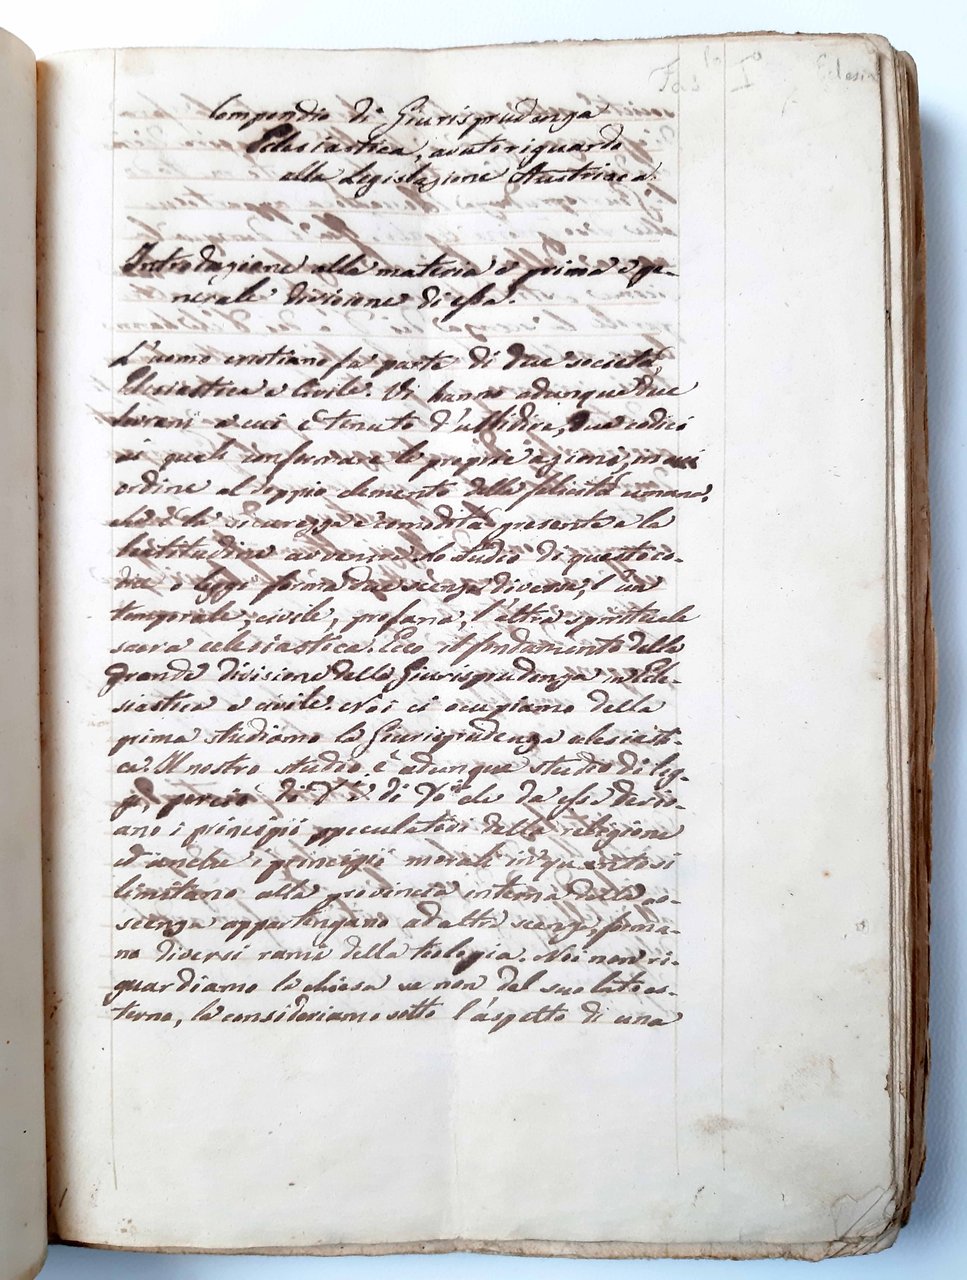 Fas.lo Io Eclesia
Compendio di Giurisprudenza
Eclesiastica, avuto riguardo
alla Legislazione Austriaca.
Introduzione alla materia e prima e ge-
nerale divisione di essa.
L'uomo cristiano fa parte di due società,
Eclesiastica e Civile. Vi hanno adunque due
sovrani a cui è tenuto d'ubbidire, due codici
ai quali conformare le proprie azioni, in
ordine al doppio elemento della felicità umana,
che è la sicurezza e comodità presente e la
beatitudine avvenire. Lo studio di questi co-
dici o leggi forma due scenze diverse, l'una
temporale, civile, profana, l'altra spirituale
sacra eclesiastica. Ecco il fondamento della
grande divisione della Giurisprudenza in Ecle-
siastica e civile. Noi ci ocupiamo della
prima studiamo la Giurisprudenza eclesiasti-
ca. Il nostro studio è adunque studio di leg-
gi, perciò di che da esse deri-
ano i principii speculativi della religione
ed anche i principii morali in quanto si
limitano alla provincia interna della co-
scenza appartengano ad altre scenze, forma-
no diversi rami della teologia. Noi non ri-
guardiamo la chiesa se non dal suo lato es-
terno, la consideriamo sotto l'aspetto di una